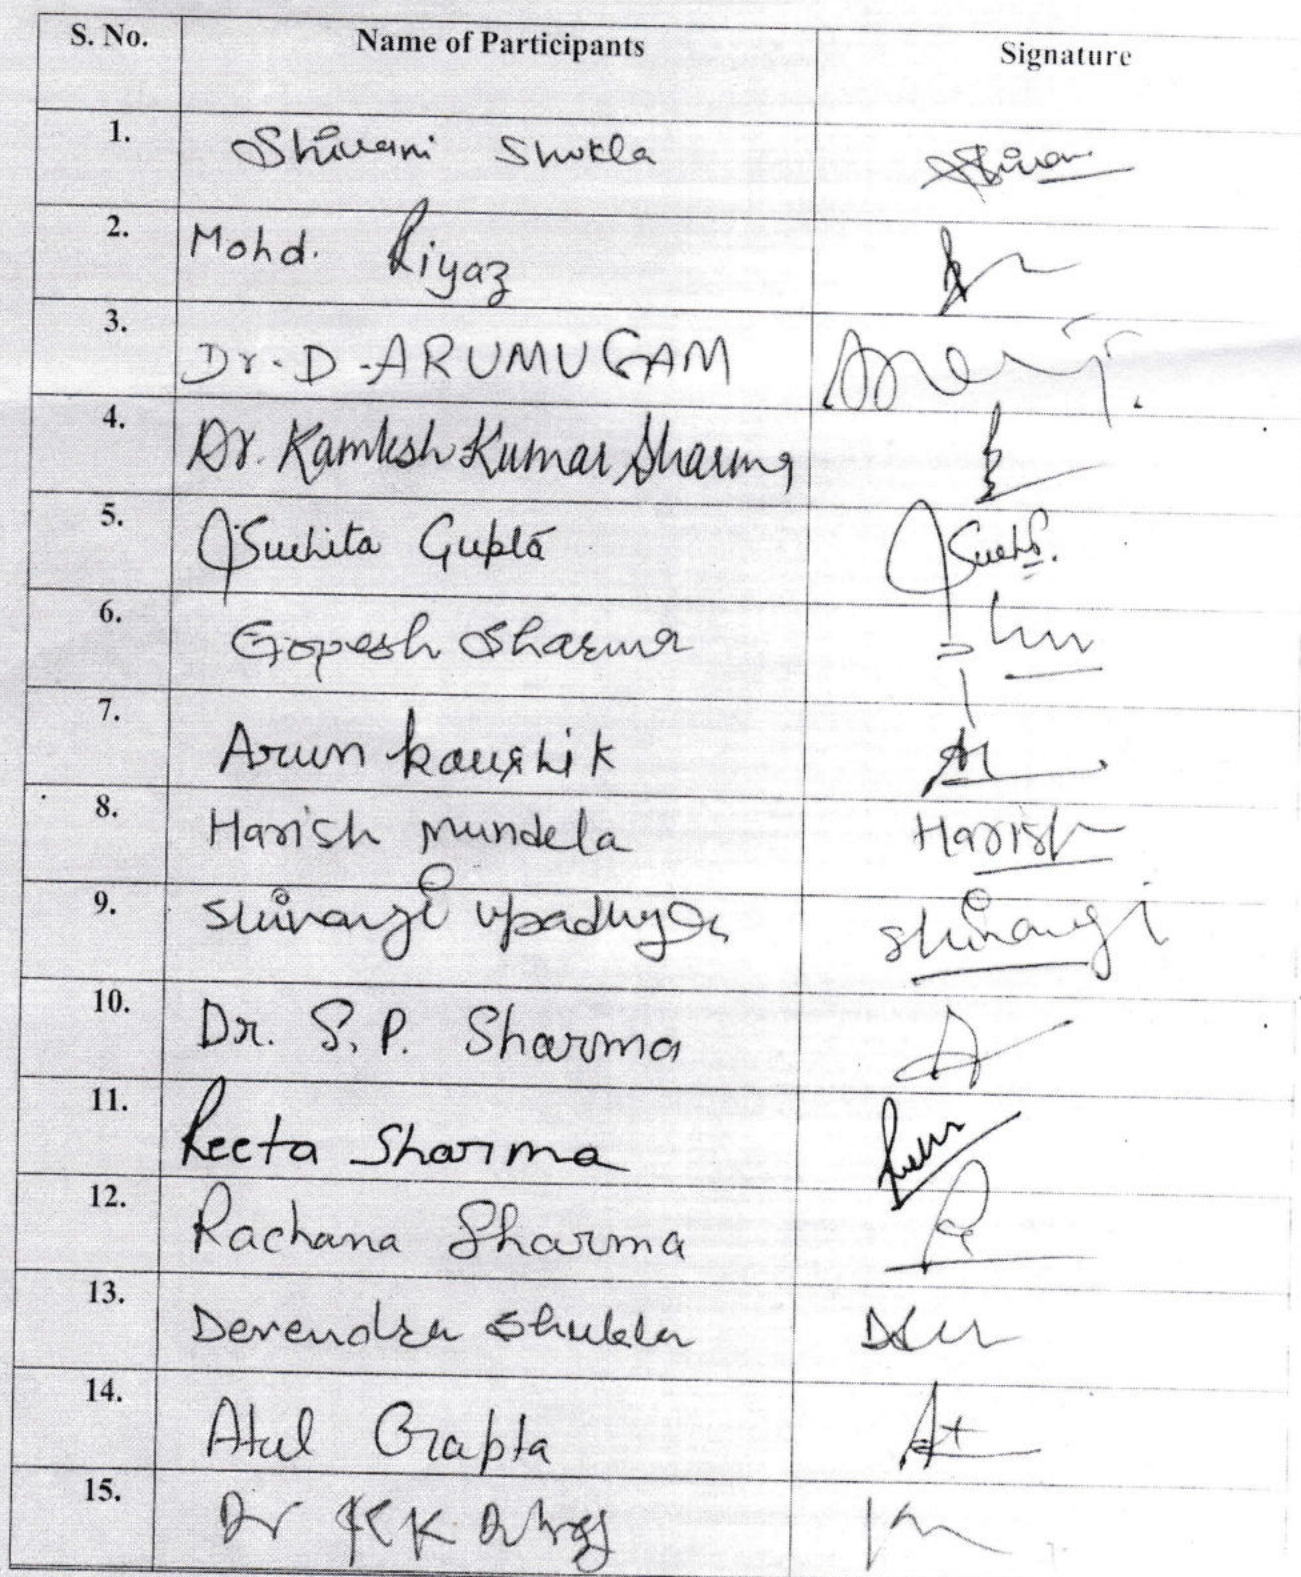 S. No. Name of Participants Signature
1. Shivani Shukla Shivan
2. Mohd. Riyaz
3. Dr. D. ARUMUGAM
4. Dr. Kamlesh Kumar Sharma
5. Suchita Gupta
6. Gopesh Sharma
7. Arun kaushik
8. Harish mundela Harish
9. Shivangi upadhyay Shivangi
10. Dr. S. P. Sharma
11. Reeta Sharma
12. Rachana Sharma
13. Devendra Shukla
14. Atul Gupta
15. Dr K K